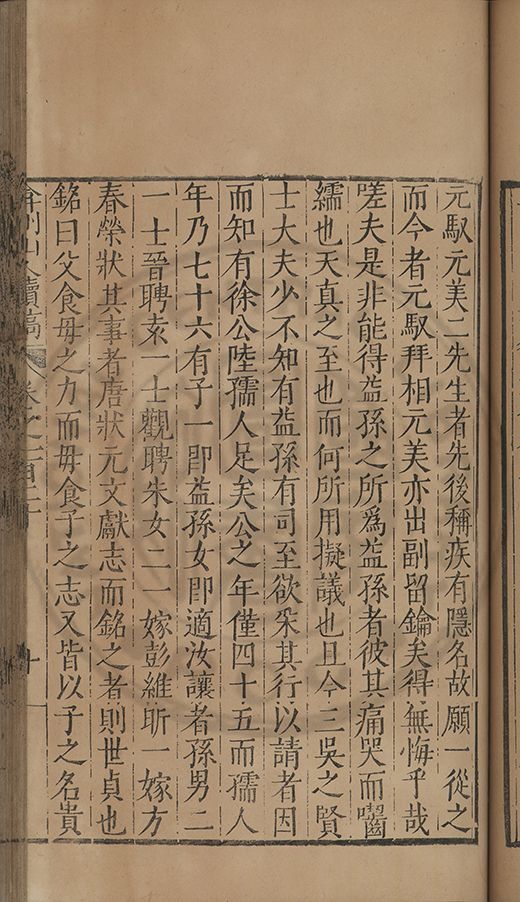 元馭元美二先生者先後稱疾有隱名故願一從之
而今者元馭拜相元美亦出副留鑰矣得無悔乎哉
嗟夫是非能得益孫之所爲益孫者彼其痛哭而囓
繻也天真之至也而何所用擬議也且今三吳之賢
士大夫少不知有益孫有司至欲采其行以請者因
而知有徐公陸孺人足矣公之年僅四十五而孺人
年乃七十六有子一卽益孫女卽適汝讓者孫男二
一士晉聘袁一士觀聘朱女二一嫁彭維昕一嫁方
春榮狀其事者唐狀元文獻志而銘之者則世貞也
銘曰父食毋之力而毋食子之志又皆以子之名貴
弇州山人續稿 卷之一百二十 十